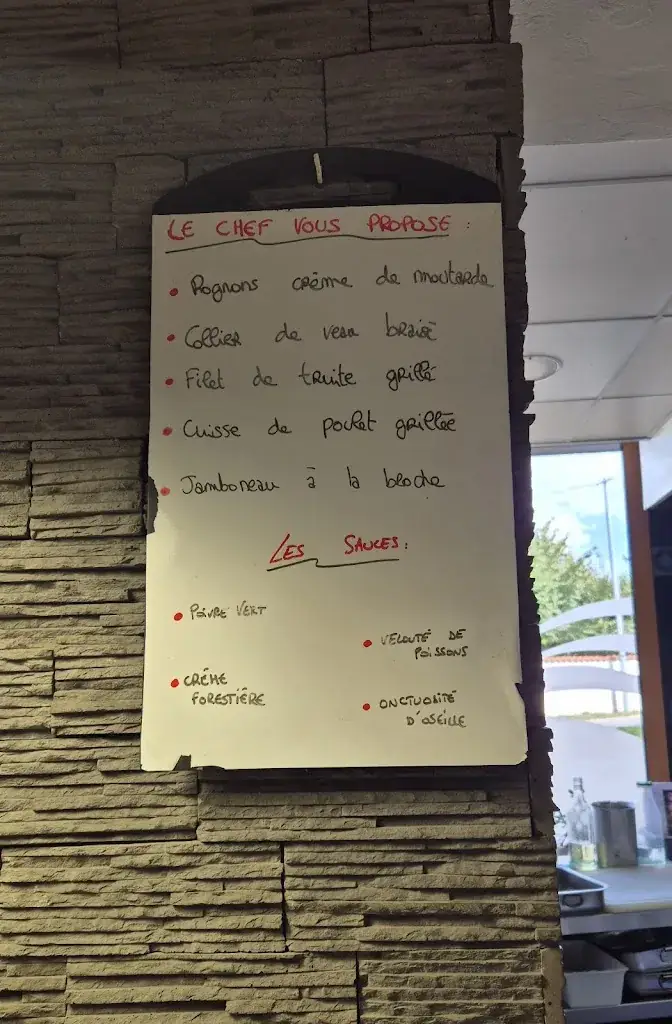 LE CHEF VOUS PROPOSE :
• Rognons crème de moutarde
• Collier de veau braisé
• Filet de truite grillé
• Cuisse de poulet grillée
• Jambonneau à la broche
LES SAUCES :
• POIVRE VERT
• CRÈME
FORESTIÈRE
• VELOUTÉ DE
POISSONS
• ONCTUOSITÉ
D'OSEILLE